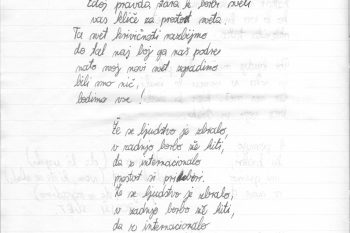 pravda, stara je borba sveti
vas kliče za prostost sveta.
Ta svet krivičnosti razbijmo
do tal naj boj ga naš podre
nato moj novi svet zgradimo
bili smo nič,
bodimo vse!
Že se ljudstvo je zbralo,
v zadnjo borbo že hiti,
da z internacionalo
prostost si pridobi.
Že se ljudstvo je zbralo,
v zadnjo borbo že hiti,
da z internacionalo